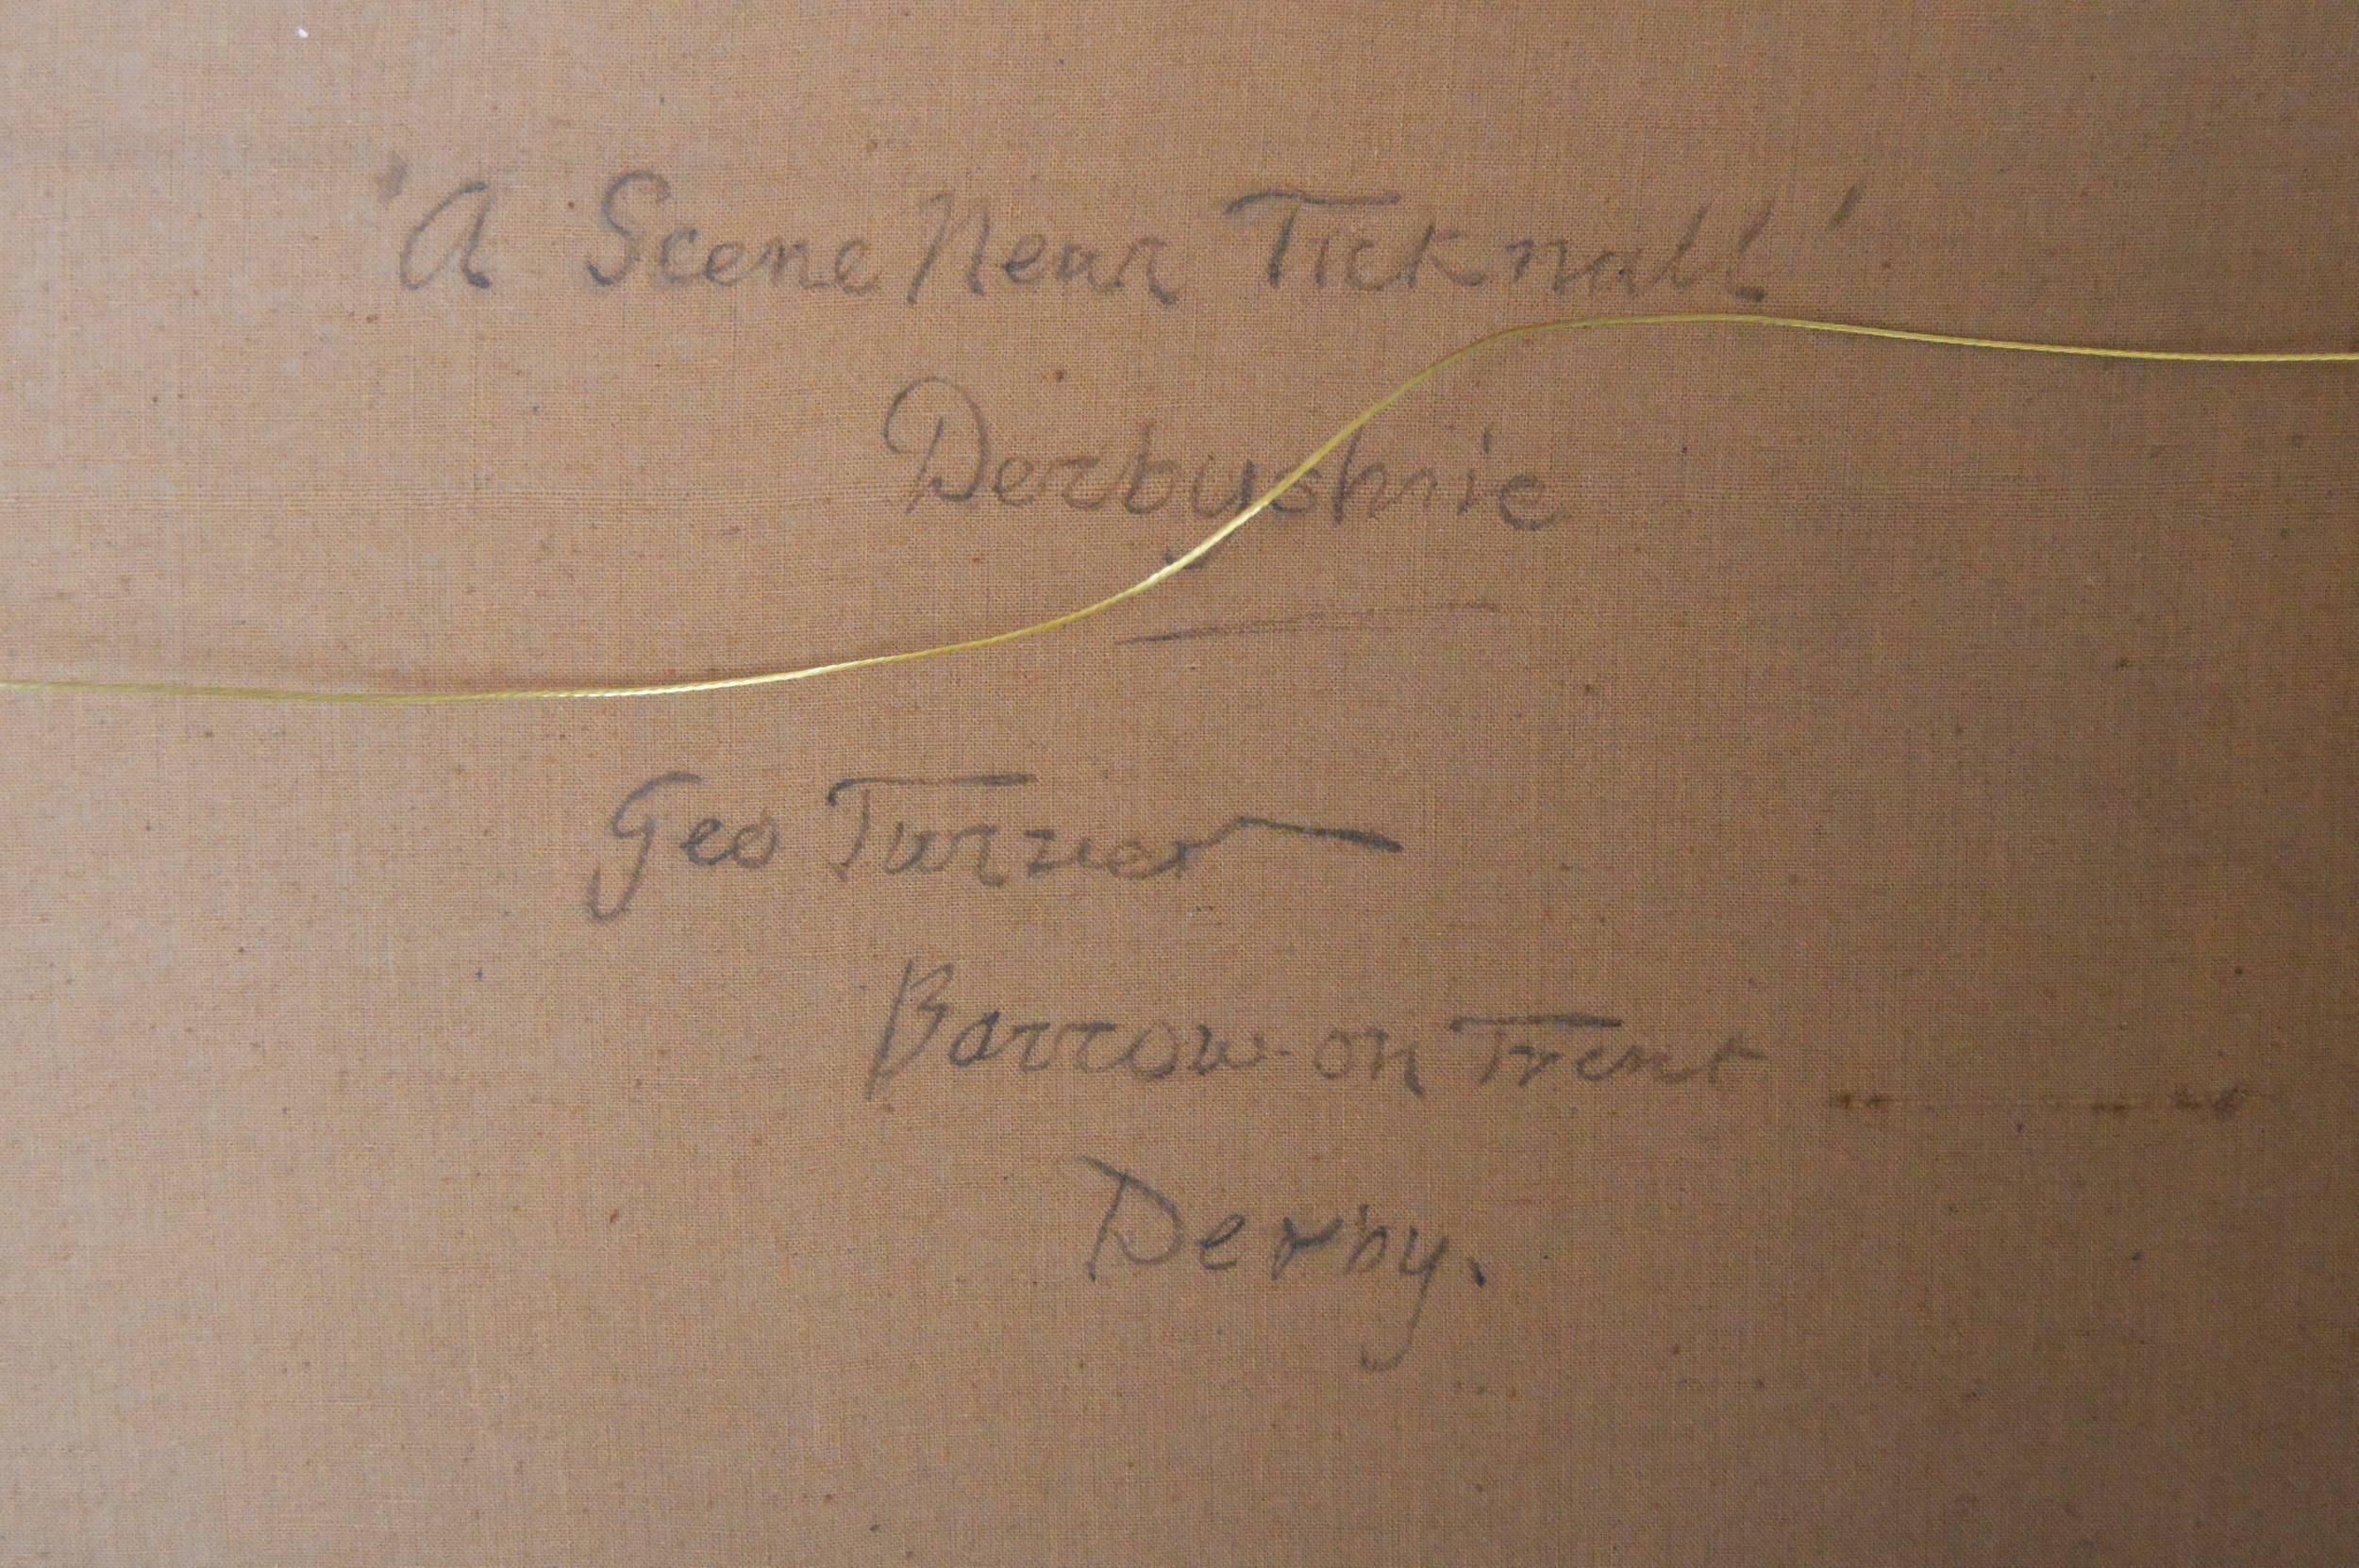 'A Scene Near Ticknall'
Derbyshire
Geo Turner
Barrow-on Trent
Derby.